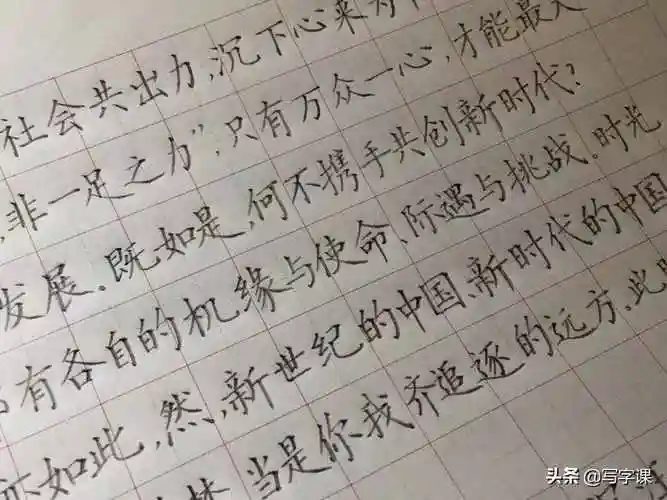 社会共出力,沉下心来为
,非一足之力”,只有万众一心,才能最大
发展.既如是,何不携手共创新时代?
有各自的机缘与使命、际遇与挑战.时光
亦如此,然,新世纪的中国、新时代的中国
当是你我齐追逐的远方.此
头条@写字课